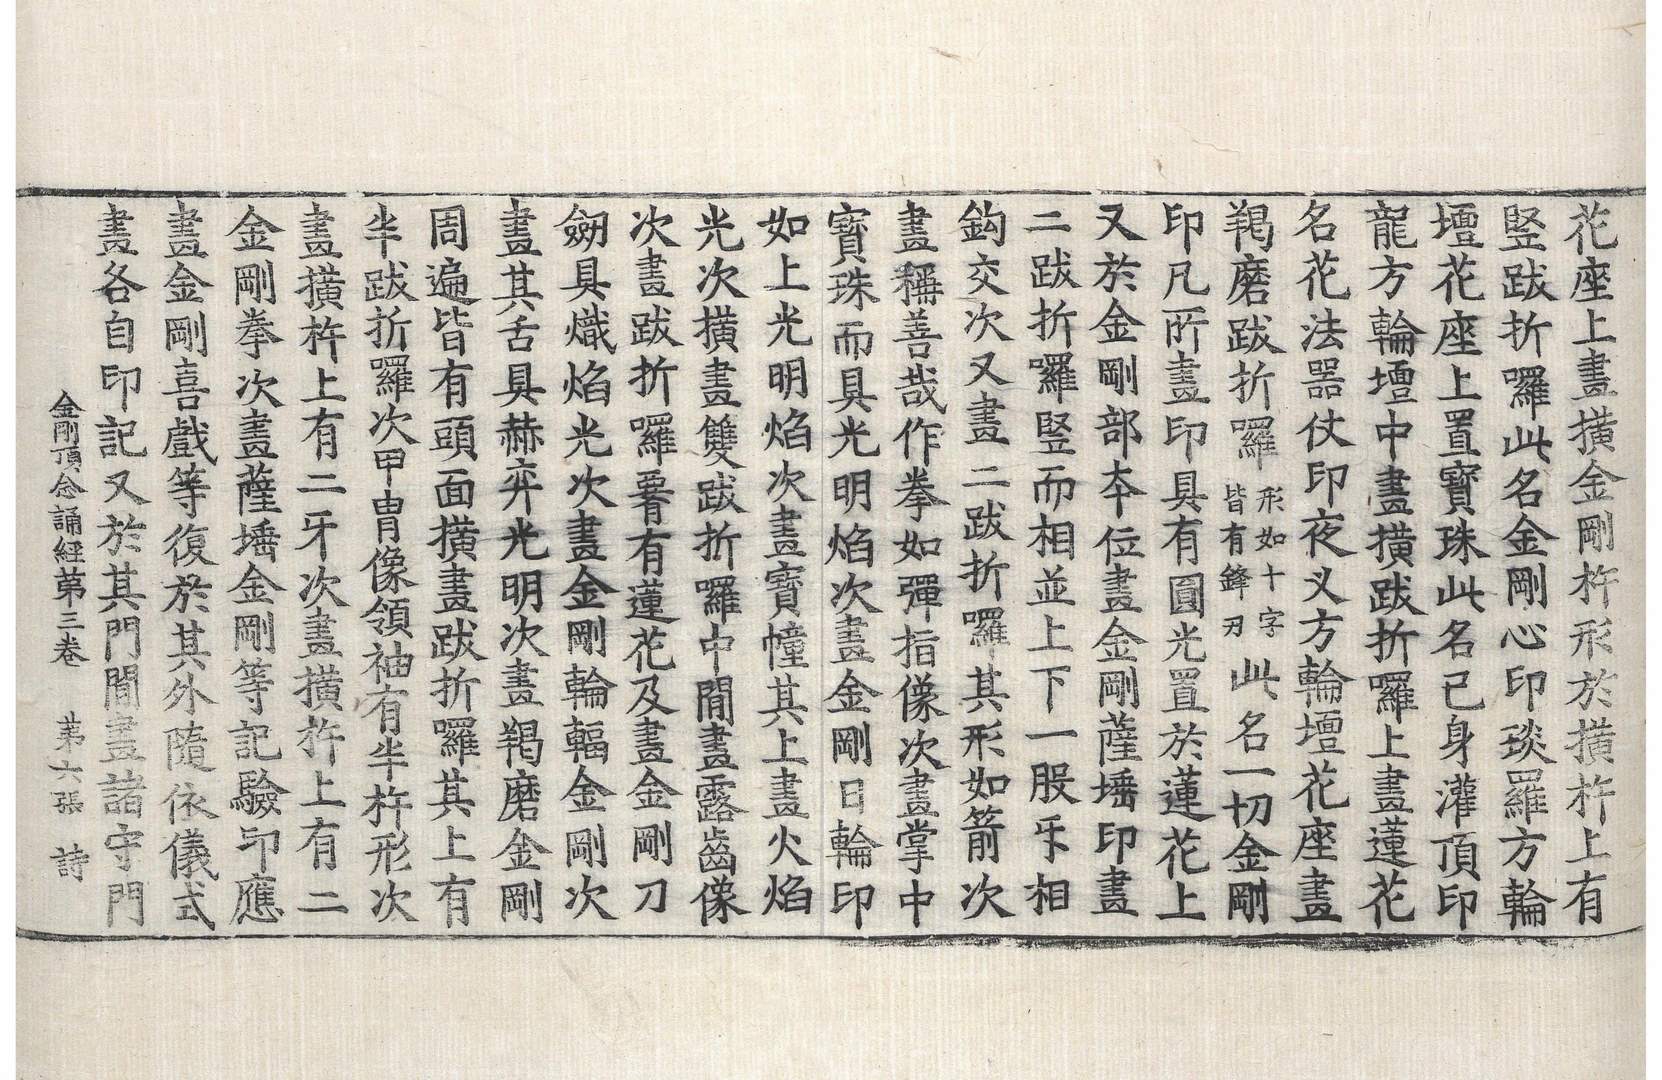 花座上畫撗金剛杵形於撗杵上有
竪跋折囉此名金剛心印琰羅方輪
壇花座上置寶珠此名己身灌頂印
龍方輪壇中畫撗跋折囉上畫蓮花
名花法噐仗印夜叉方輪壇花座畫
羯磨跋折囉形如十字皆有鋒刃此名一切金剛
印凡所畫印具有圓光置於蓮花上
又於金剛部本位畫金剛薩埵印畫
二跋折囉竪而相並上下一股乑相
鈎交次又畫二跋折囉其形如箭次
畫稱善哉作拳如彈指像次畫掌中
寶珠而具光明焰次畫金剛日輪印
如上光明焰次畫寶幢其上畫火焰
光次撗畫雙跋折囉中間畫露齒像
次畫跋折囉署有蓮花及畫金剛刀
劔具熾焰光次畫金剛輪輻金剛次
畫其舌具赫弈光明次畫羯磨金剛
周遍皆有頭面撗畫跋折囉其上有
半跋折囉次甲冑像領袖有半杵形次
畫撗杵上有二牙次畫撗杵上有二
金剛拳次畫薩埵金剛等記驗印應
畫金剛喜戲等復於其外隨依儀式
畫各自印記又於其門間畫諸守門
金剛頂念誦經苐三卷 苐六張 詩